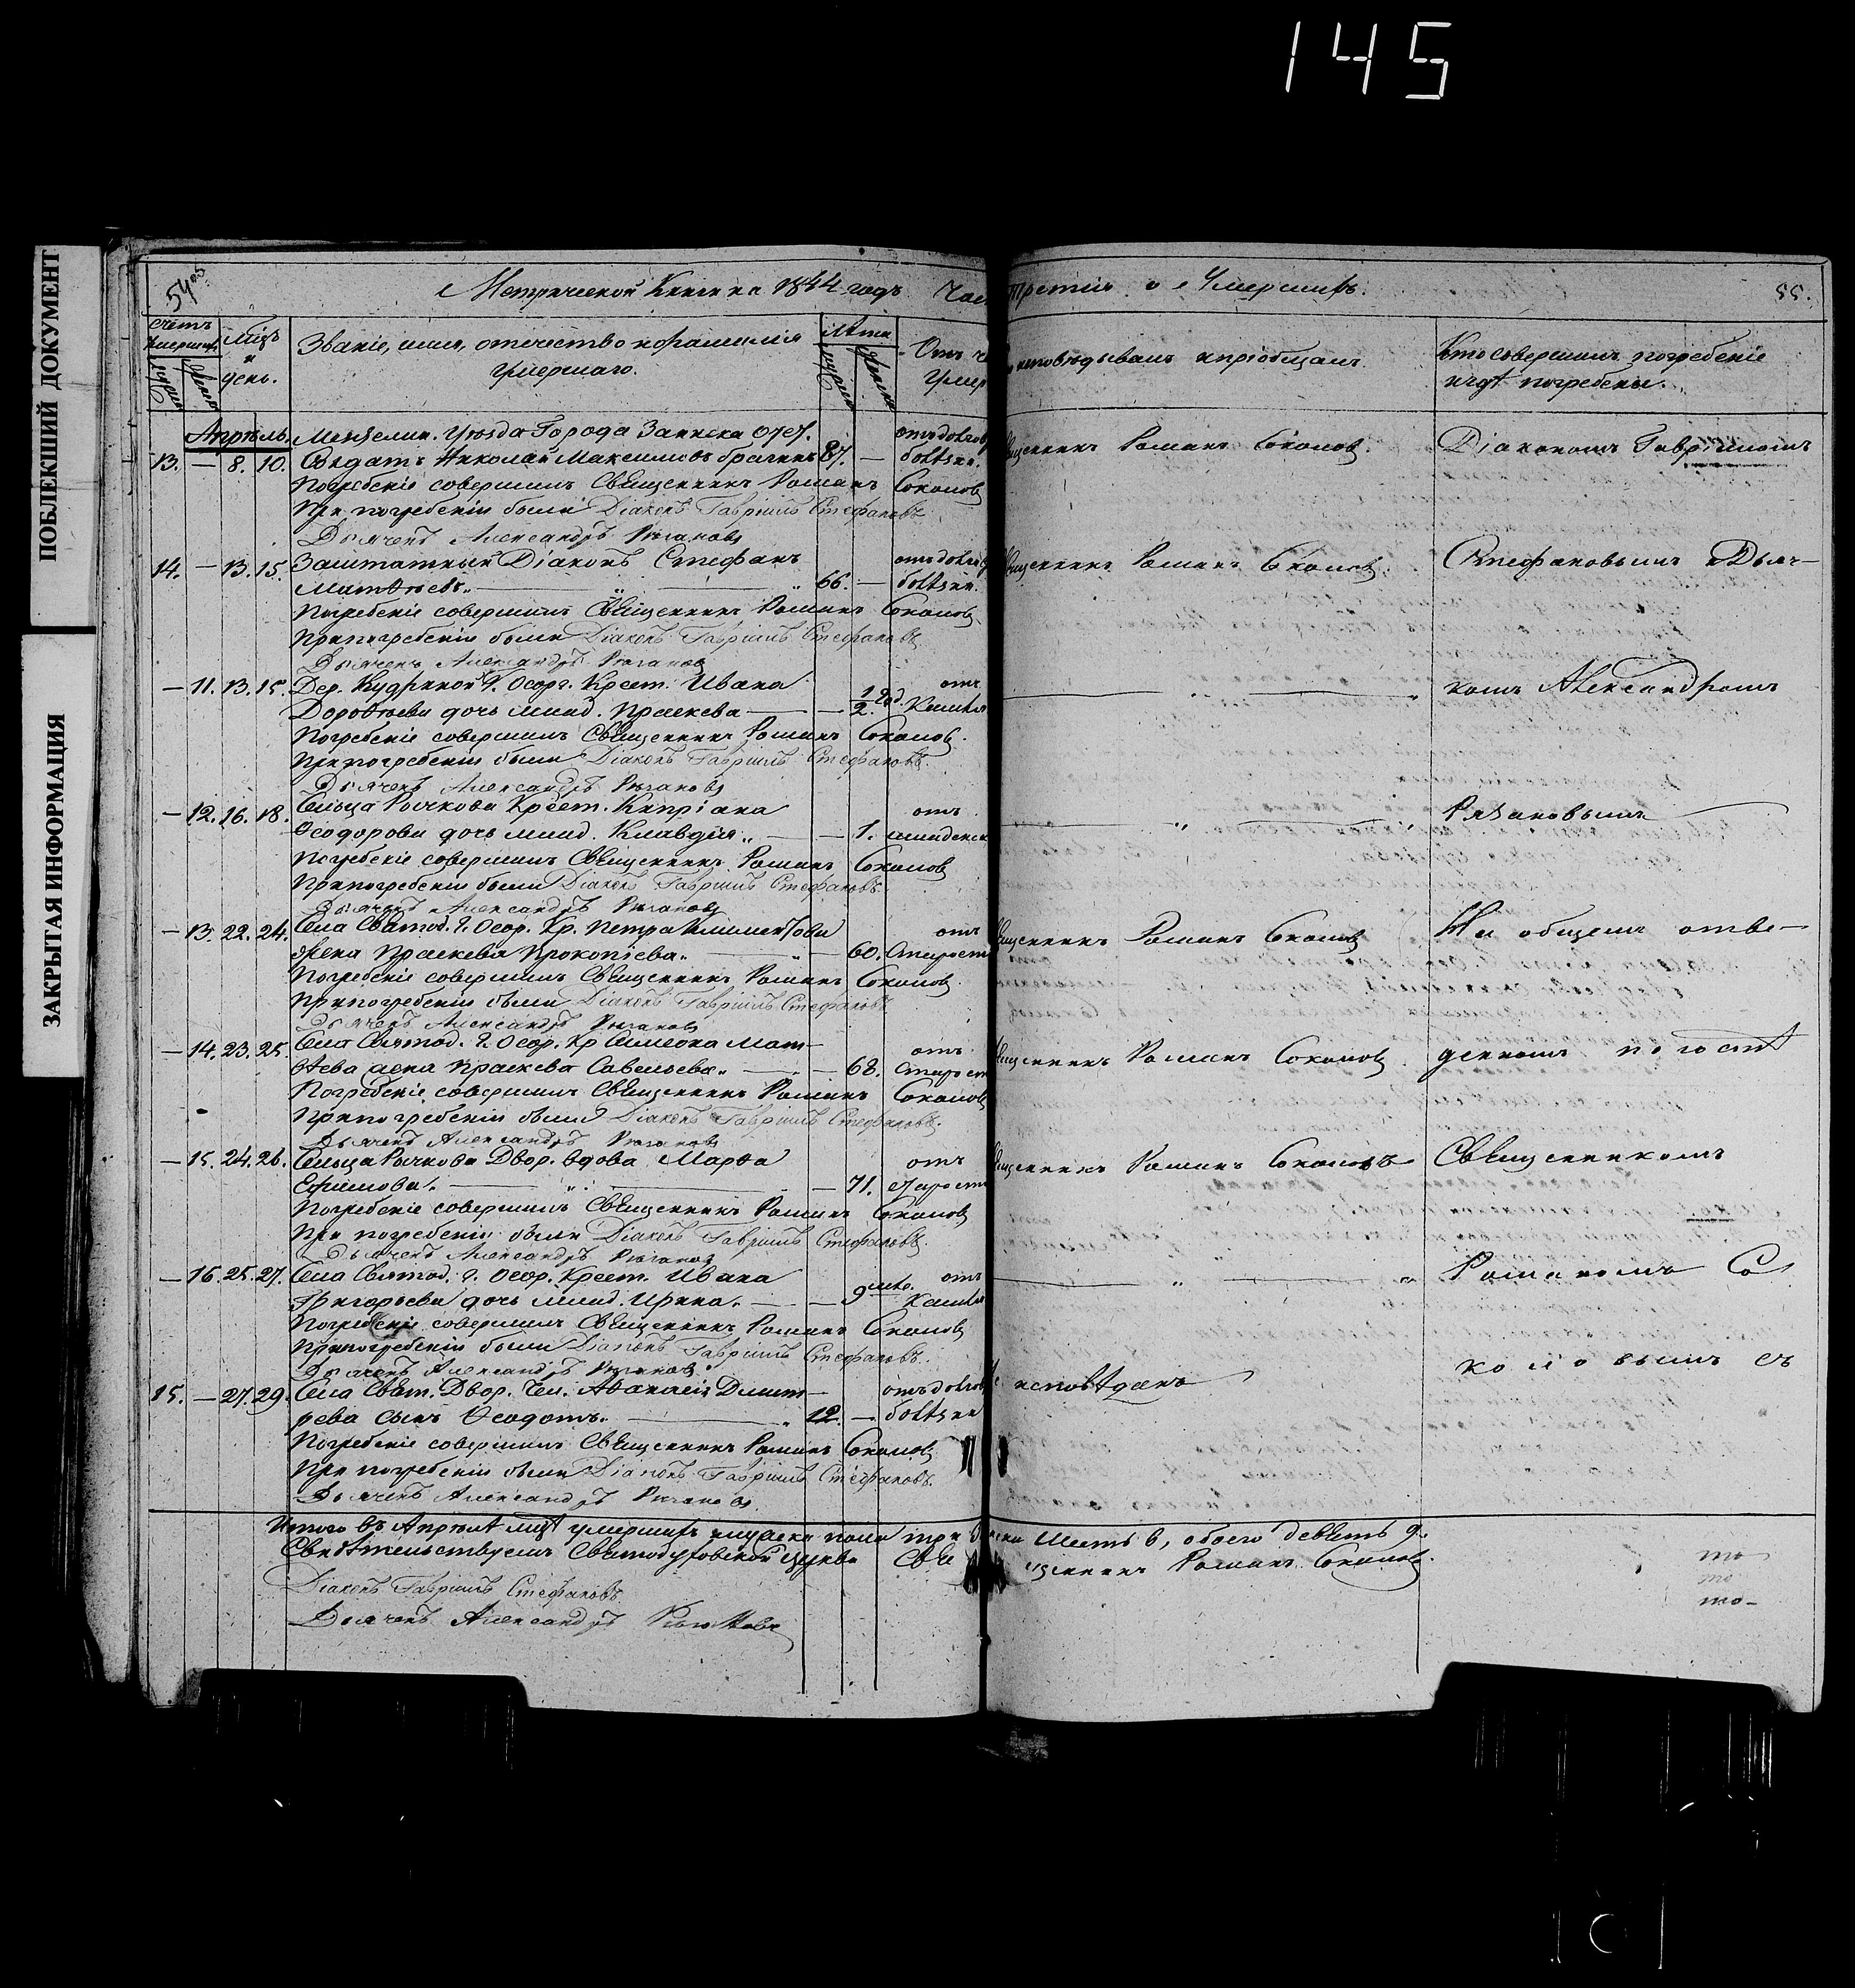 145
ПОБЛЕКШИЙ ДОКУМЕНТ
ЗАКРЫТАЯ ИНФОРМАЦИЯ
54
Метрической Книги на 1844 годъ Час
счетъ умершихъ
Мцъ и день.
Званіе, имя, отечество и фамилія
умершаго.
Лѣта
Отъ че
умер
Апрѣль.
Мензелин. Уѣзда Города Заинска
отъ долгов
13. — 8. 10. Солдатъ Николай Максимовъ 87. — болѣзни.
Погребеніе совершилъ Священникъ Романъ Соколовъ
При погребеніи были Діаконъ Гавріилъ Стефановъ
Дьячекъ Александръ Рязановъ
14. — 13. 15. Заштатный Діаконъ Стефанъ
отъ долгов
Матвѣевъ. — 66. — болѣзни.
Погребеніе совершилъ Священникъ Романъ Соколовъ
При погребеніи были Діаконъ Гавріилъ Стефановъ
Дьячекъ Александръ Рязановъ
— 11. 13. 15. Дер. Кудриной Г. Осорг. Крест. Ивана
отъ
Дороѳеева дочь млад. Праскева — — 1/2 год. Кашля
Погребеніе совершилъ Священникъ Романъ Соколовъ.
При погребеніи были Діаконъ Гавріилъ Стефановъ.
Дьячекъ Александръ Рязановъ
— 12. 16. 18. Сельца Рычкова Крест. Кипріана
отъ
Ѳеодорова дочь млад. Клавдія. — — 1. младенск
Погребеніе совершилъ Священникъ Романъ Соколовъ
При погребеніи были Діаконъ Гавріилъ Стефановъ.
Дьячекъ Александръ Рязановъ
— 13. 22. 24. Села Святод. Г. Осор. Кр. Петра Климентова
отъ
жена Праскева Прокопіева. — — 60. Старости
Погребеніе совершилъ Священникъ Романъ Соколовъ.
При погребеніи были Діаконъ Гавріилъ Стефановъ
Дьячекъ Александръ Рязановъ
— 14. 23. 25. Села Святод. Г. Осор. Кр Симеона Мат-
отъ
вѣева жена Праскева Савельева. — — 68. Старост
Погребеніе совершилъ Священникъ Романъ Соколовъ
При погребеніи были Діаконъ Гавріилъ Стефановъ.
Дьячекъ Александръ Рязановъ
— 15. 24. 26. Сельца Рычкова Двор. вдова Марѳа
отъ
Ефимова. — — 71. старост
Погребеніе совершилъ Священникъ Романъ Соколовъ
При погребеніи были Діаконъ Гавріилъ Стефановъ.
Дьячекъ Александръ Рязановъ
— 16. 25. 27. Села Святод. Г. Осор. Крест. Ивана
отъ
Григорьева дочь млад. Ирина. — — 9 Кашля
Погребеніе совершилъ Священникъ Романъ Соколовъ
При погребеніи были Діаконъ Гавріилъ Стефановъ.
Дьячекъ Александръ Рязановъ
15. — 27. 29. Села Свят. Двор. Чел. Аѳанасія Димит-
отъ долгов
рева сынъ Ѳеодотъ. — 12. — болѣзни
Погребеніе совершилъ Священникъ Романъ Соколовъ
При погребеніи были Діаконъ Гавріилъ Стефановъ.
Дьячекъ Александръ Рязановъ.
Итого въ Апрѣлѣ мцѣ умершихъ мужеска пола три
Свидѣтельствуемъ Святодуховской церкви Свя
Діаконъ Гавріилъ Стефановъ
Дьячекъ Александръ
третія о Умершихъ.
55.
исповѣдывалъ и пріобщалъ.
Кто совершилъ погребеніе
и гдѣ погребены.
щенникъ Романъ Соколовъ.
Діакономъ Гавріиломъ
щенникъ Романъ Соколовъ.
Стефановымъ и Дьяч-
комъ Александромъ
Рязановымъ
щенникъ Романъ Соколовъ
На общемъ отве-
щенникъ Романъ Соколовъ
денномъ погостѣ
щенникъ Романъ Соколовъ
Священникомъ
Романомъ Со
коловымъ съ
исповѣданъ
женска Шесть 6, обоего девять 9.
щенникъ Романъ Соколовъ.
то
то
то-